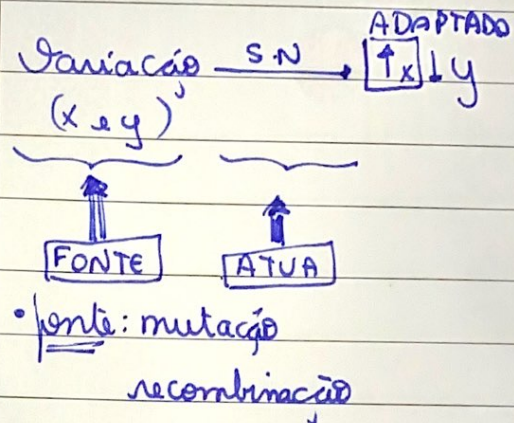 ADAPTADO
Variação S.N ↑x ↓y
(x e y)
FONTE ATUA
• fonte: mutação
recombinação